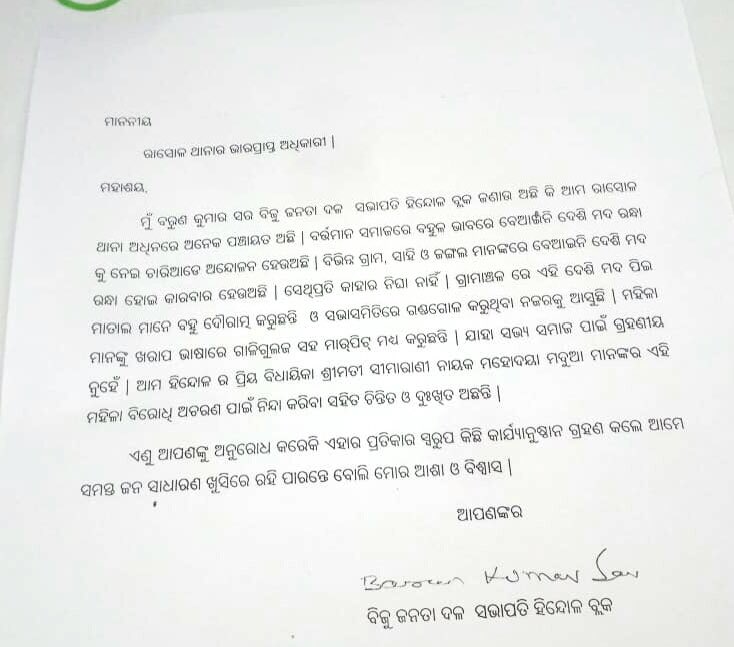 ମାନନୀୟ
ରାସୋଳ ଥାନାର ଭାରପ୍ରାପ୍ତ ଅଧିକାରୀ |
ମହାଶୟ,
ମୁଁ ବରୁଣ କୁମାର ସର ବିଜୁ ଜନତା ଦଳ ସଭାପତି ହିନ୍ଦୋଳ ବ୍ଲକ ଜଣାଉ ଅଛି କି ଆମ ରାସୋଳ
ଥାନା ଅଧିନରେ ଅନେକ ପଞ୍ଚାୟତ ଅଛି | ବର୍ତ୍ତମାନ ସମାଜରେ ବହୁଳ ଭାବରେ ବେଆଇନି ଦେଶି ମଦ ରନ୍ଧା
କୁ ନେଇ ଚାରିଆଡେ ଅନ୍ଦୋଳନ ହେଉଅଛି | ବିଭିନ୍ନ ଗ୍ରାମ, ସାହି ଓ ଜଙ୍ଗଲ ମାନଙ୍କରେ ବେଆଇନି ଦେଶି ମଦ
ରନ୍ଧା ହୋଇ କାରବାର ହେଉଅଛି | ସେଥିପ୍ରତି କାହାର ନିଘା ନାହିଁ | ଗ୍ରାମାଞ୍ଚଳ ରେ ଏହି ଦେଶି ମଦ ପିଇ
ମାତାଲ ମାନେ ବହୁ ଦୌରାତ୍ମ କରୁଛନ୍ତି ଓ ସଭାସମିତିରେ ଗଣ୍ଡଗୋଳ କରୁଥିବା ନଜରକୁ ଆସୁଛି | ମହିଳା
ମାନଙ୍କୁ ଖରାପ ଭାଷାରେ ଗାଳିଗୁଲଜ ସହ ମାର୍‌ପିଟ୍ ମଧ୍ୟ କରୁଛନ୍ତି | ଯାହା ସଭ୍ୟ ସମାଜ ପାଇଁ ଗ୍ରହଣୀୟ
ନୁହେଁ | ଆମ ହିନ୍ଦୋଳ ର ପ୍ରିୟ ବିଧାୟିକା ଶ୍ରୀମତୀ ସୀମାରାଣୀ ନାୟକ ମହୋଦୟା ମଦୁଆ ମାନଙ୍କର ଏହି
ମହିଳା ବିରୋଧି ଅଚରଣ ପାଇଁ ନିନ୍ଦା କରିବା ସହିତ ଚିନ୍ତିତ ଓ ଦୁଃଖିତ ଅଛନ୍ତି |
ଏଣୁ ଆପଣଙ୍କୁ ଅନୁରୋଧ କରେକି ଏହାର ପ୍ରତିକାର ସ୍ୱରୁପ କିଛି କାର୍ଯ୍ୟାନୁଷ୍ଠାନ ଗ୍ରହଣ କଲେ ଆମେ
ସମସ୍ତ ଜନ ସାଧାରଣ ଖୁସିରେ ରହି ପାରନ୍ତେ ବୋଲି ମୋର ଆଶା ଓ ବିଶ୍ୱାସ |
ଆପଣଙ୍କର
Baroun Kumar Sar
ବିଜୁ ଜନତା ଦଳ ସଭାପତି ହିନ୍ଦୋଳ ବ୍ଲକ